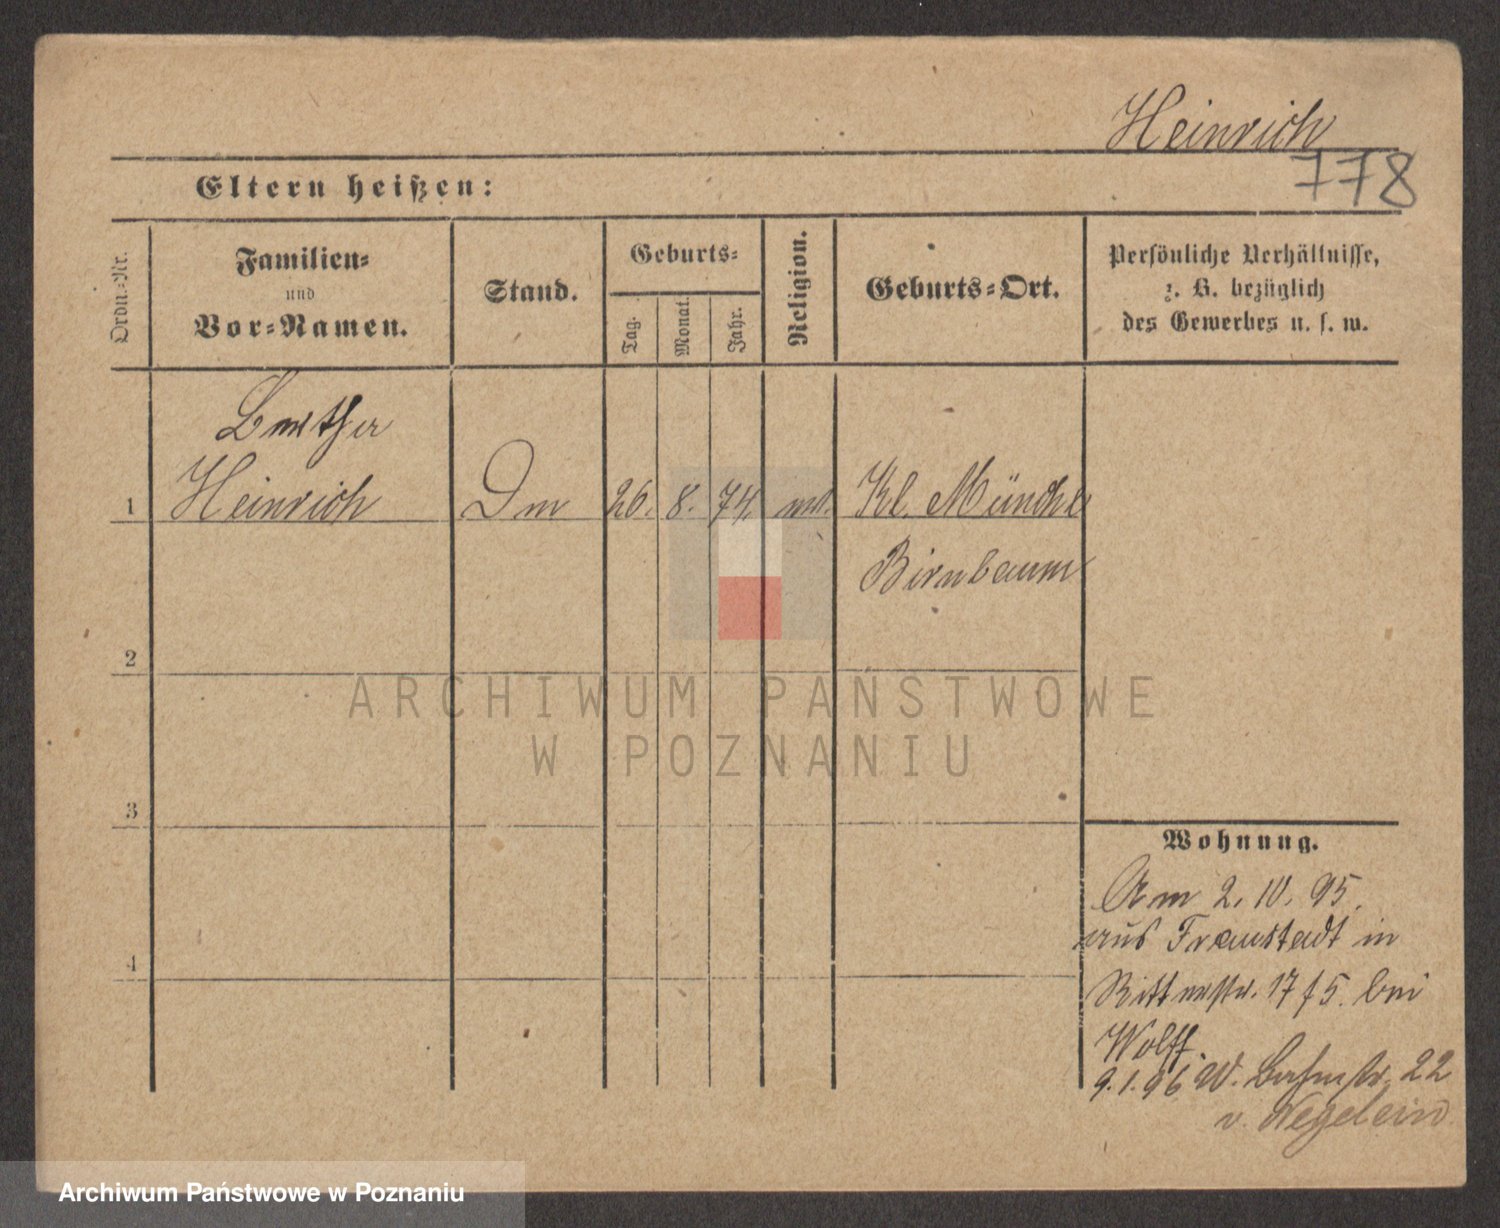 Heinrich
778
Eltern heißen:
Ordn.-Nr.
Familien-
und
Vor-Namen.
Stand.
Geburts-
Tag.
Monat.
Jahr.
Religion.
Geburts-Ort.
Persönliche Verhältnisse,
z. B. bezüglich
des Gewerbes u. s. w.
1
Heinrich
26. 8. 74.
Kl. Münche
Birnbaum
2
3
4
Wohnung.
Am 2. 10. 95.
aus Fraustadt in
Ritterstr. 17 f 5. bei
Wolff.
9.1.96 W. 22
v. Negelein
ARCHIWUM PAŃSTWOWE
W POZNANIU
Archiwum Państwowe w Poznaniu